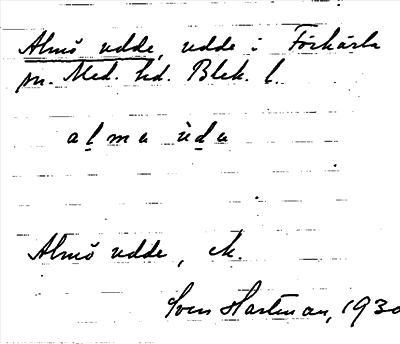 Almö udde, udde i Förkärla
sn. Med. hd. Blek. l.
almu ùdu
Almö udde, ek.
Sven Hartman, 1930